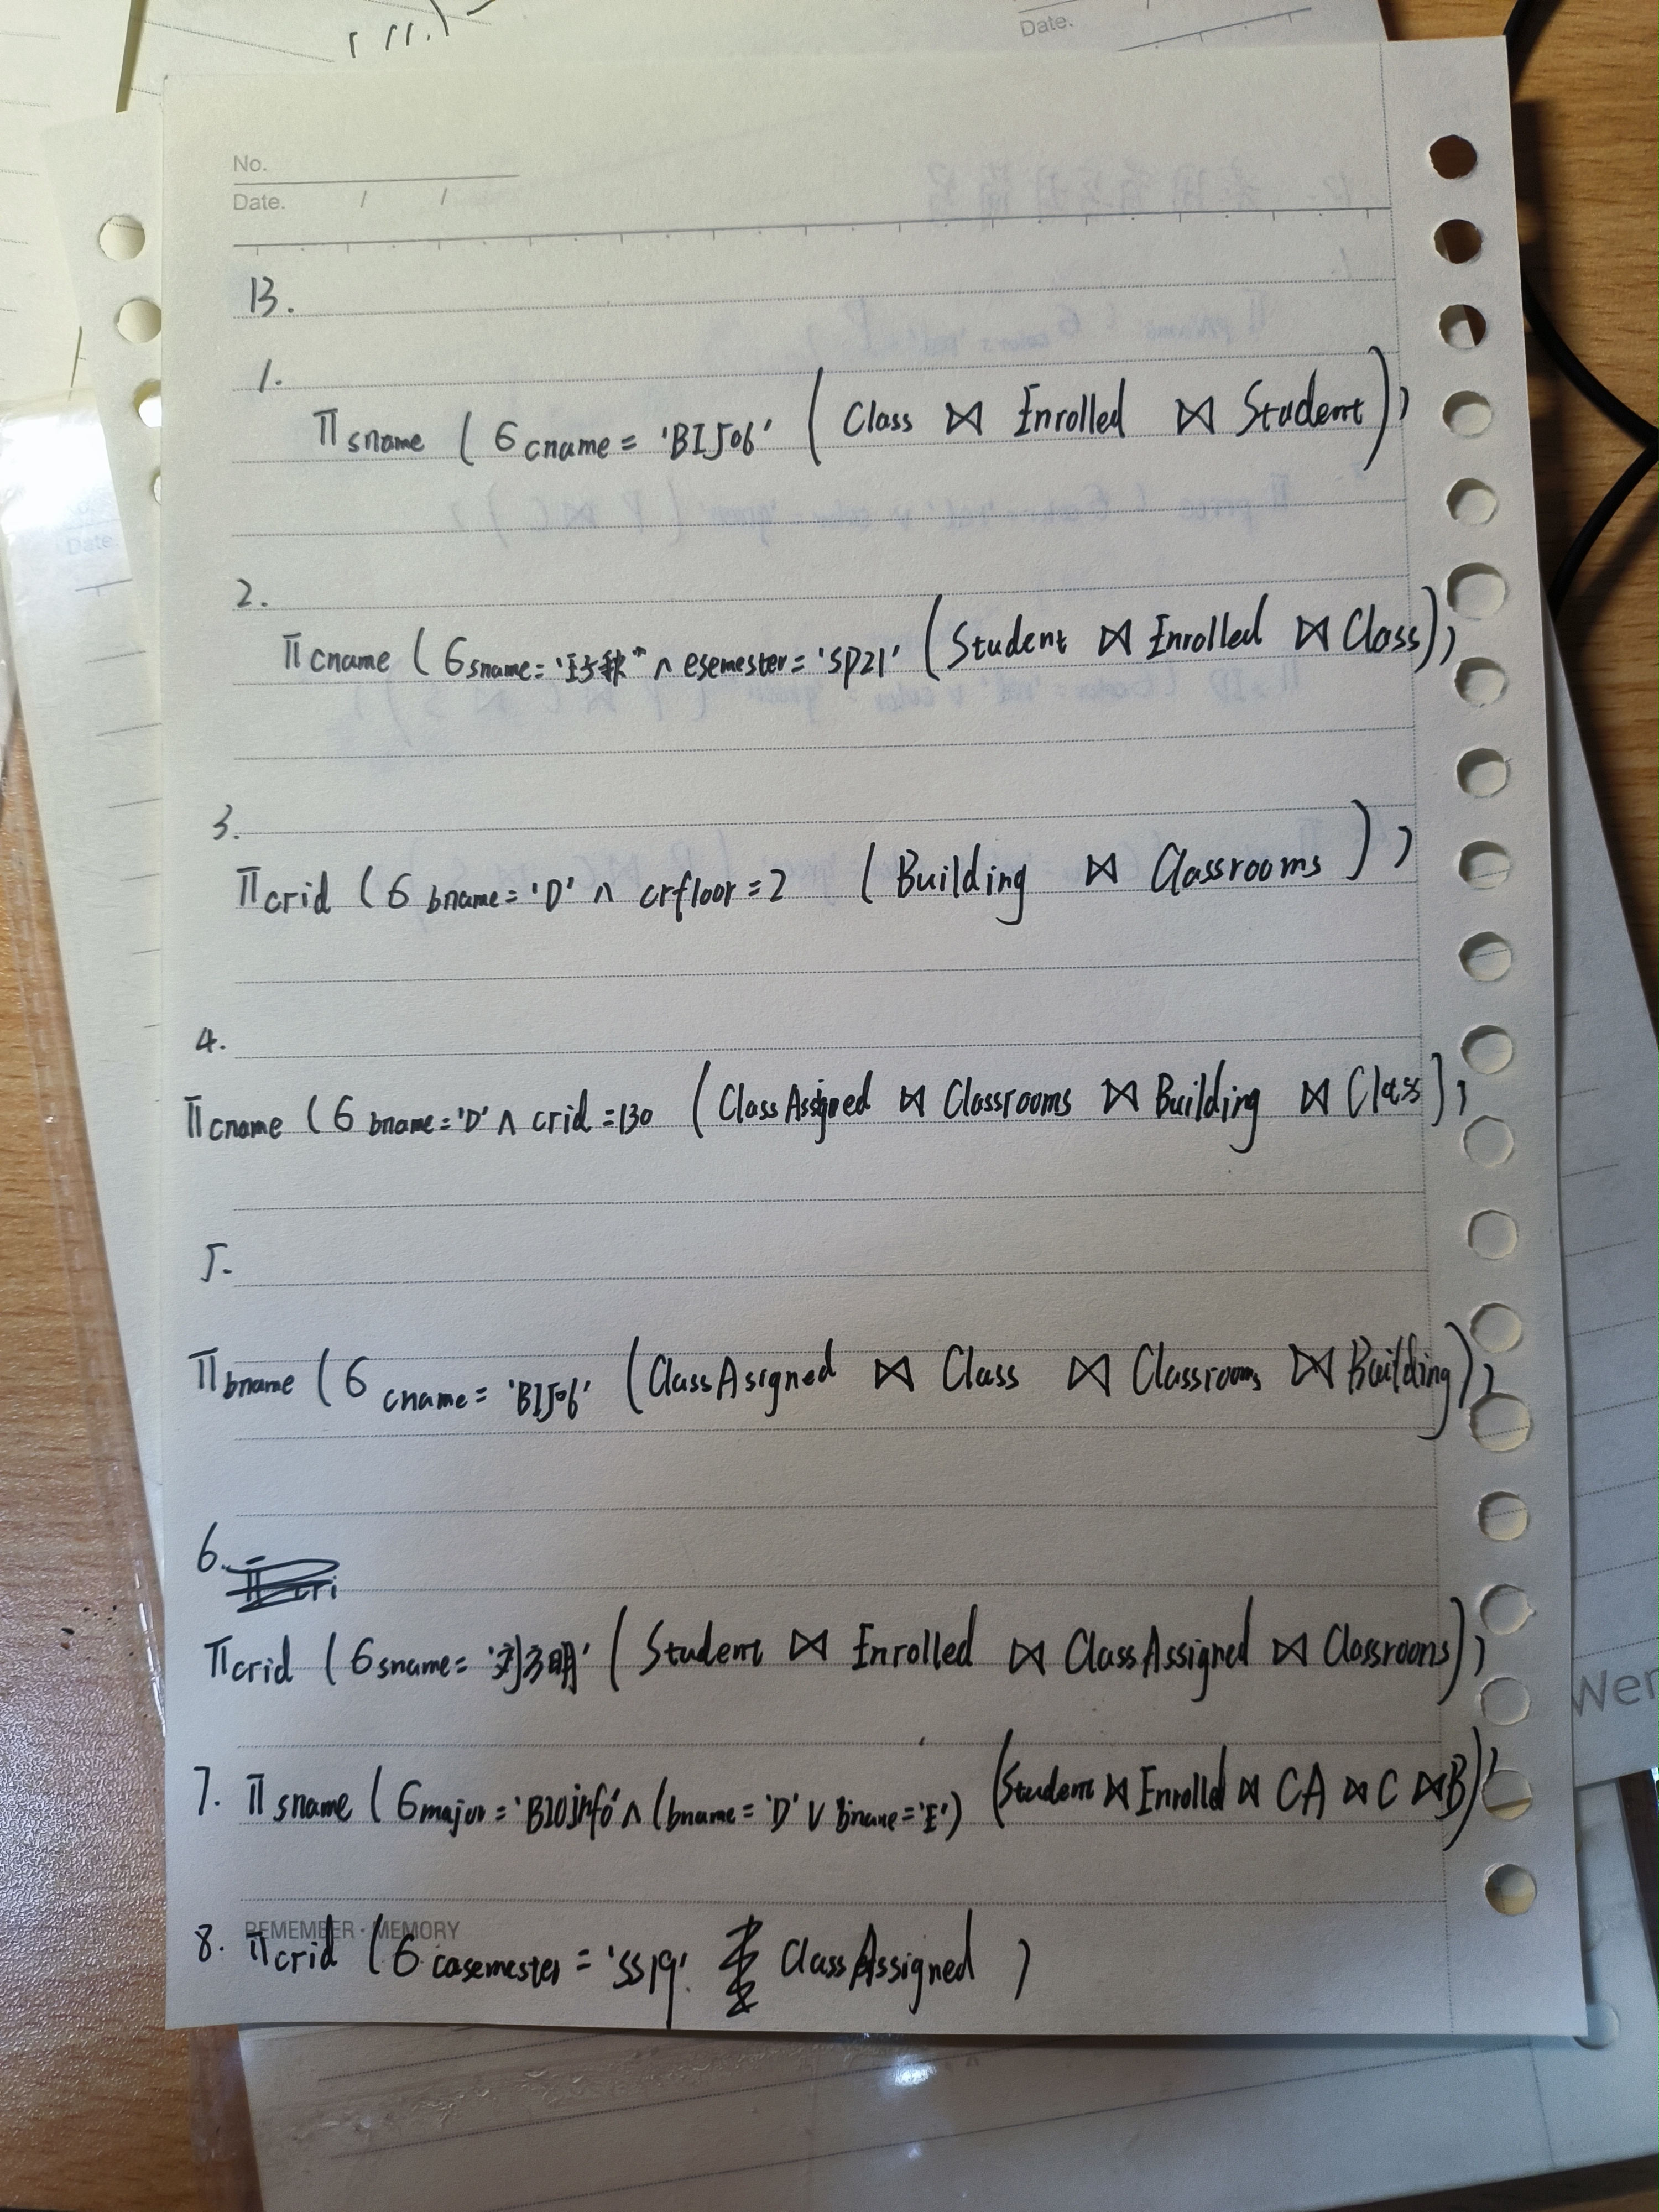 Date.
No.
Date. / /
13.
1.
π sname ( σ cname = 'BIJ06' ( Class ⋈ Enrolled ⋈ Student ) )
2.
π cname ( σ sname = '王秋' ∧ esemester = 'SP21' ( Student ⋈ Enrolled ⋈ Class ) )
3.
π crid ( σ bname = 'D' ∧ crfloor = 2 ( Building ⋈ Classrooms ) )
4.
π cname ( σ bname = 'D' ∧ crid = 130 ( ClassAssigned ⋈ Classrooms ⋈ Building ⋈ Class ) )
5.
π bname ( σ cname = 'BIJ06' ( ClassAsigned ⋈ Class ⋈ Classrooms ⋈ Building ) )
6.
π crid ( σ sname = '刘方明' ( Student ⋈ Enrolled ⋈ ClassAssigned ⋈ Classrooms ) )
7. π sname ( σ major = 'BIOinfo' ∧ ( bname = 'D' ∨ bname = 'E' ) ( Student ⋈ Enrolld ⋈ CA ⋈ C ⋈ B ) )
REMEMBER · MEMORY
8. π crid ( σ casemester = 'SS19' ClassAssigned )
Wer